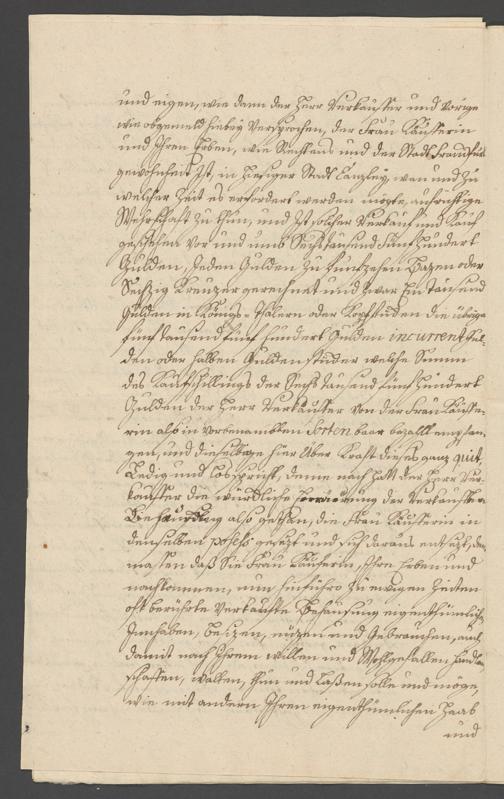 und eigen, wie dann der Herr Verkäuffer und Vorige
wie obgemeld hiebey Versprochen, der Frau Käufferin
und Ihren Erben, wie Rechtens und der Stadt Franckfurt
gewohnheit Ist, in hiesiger Stadt Canzley, wan und zu
welcher Zeit es erfordert werden mögte, aufrichtige
Wehrschafft zu thun, und Ist solcher Verkauf und Kauf
geschehen vor und umb Sechstausend Fünf hundert
Gulden, Jeden Gulden zu funfzehen Bazen oder
Sechzig Kreuzer gerechnet und zwar Ein tausend
Gulden in Königs-Thalern oder Kopfstücken die übrige
fünf tausend fünf hundert Gulden in current Gul-
den oder halben Guldenstücker welche Summ
des Kaufschillings der Sechs tausend fünf hundert
Gulden der Herr Verkäuffer von der Frau Käuffe-
rin also in Vorbenambten Sorten baar bezalt empfan-
gen, und dieselbige hier über Kraft dieses ganz quit
Ledig und Loß spricht, deme nach hatt der Herr Ver-
käuffer die würckliche der Verkaufften
Behaußung also gethan, die Frau Käufferin in
denselben posess gesezt und sich daraus entsezt, der-
masen daß Sie Frau Käufferin, Ihre Erben und
nachkommen, nun hinführo zu ewigen Zeiten
oft berührte Verkaufte Behausung eigenthümlich
Innhaben, besizen, nüzen und Gebrauchen, auch
damit nach Ihrem willen und Wohlgefallen handen
schaffen, walten, thun und Laßen solle und möge,
wie mit andern Ihren eigenthümlichen Haab
und